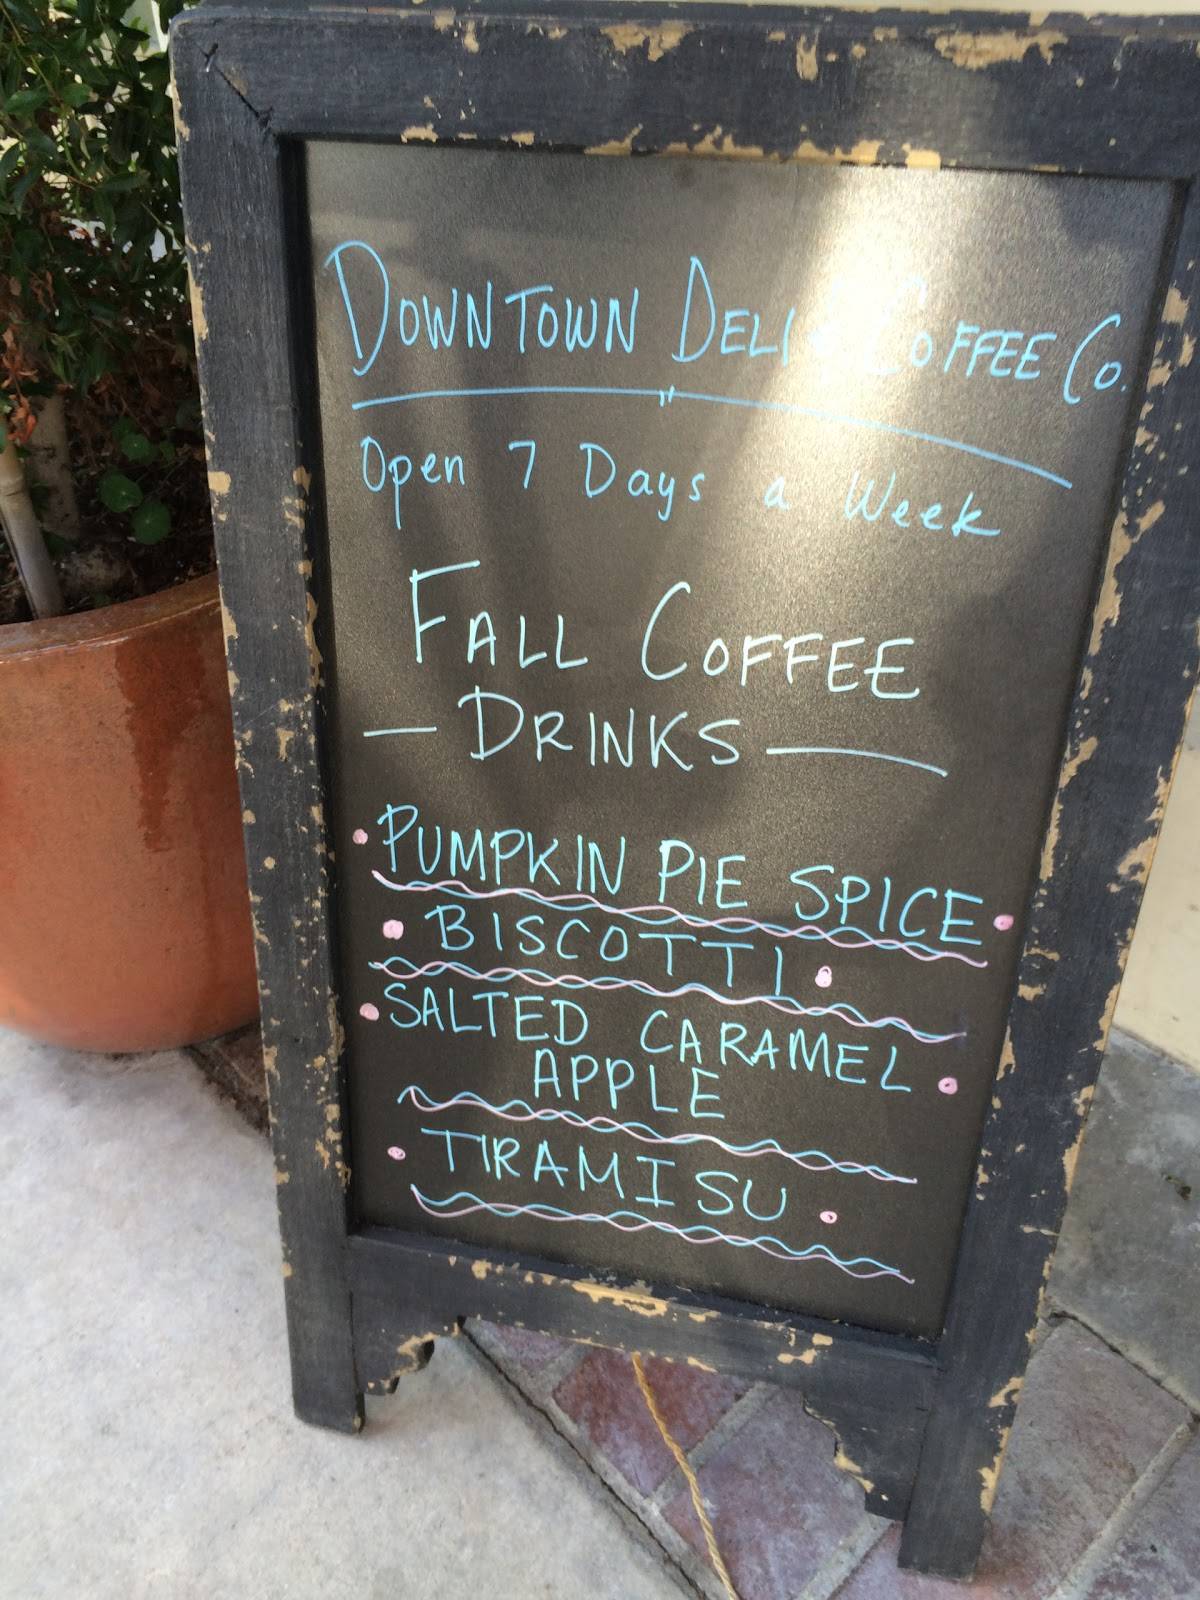 DOWNTOWN DELI & COFFEE CO.
Open 7 Days a Week
FALL COFFEE
— DRINKS —
• PUMPKIN PIE SPICE •
• BISCOTTI •
• SALTED CARAMEL •
APPLE
• TIRAMISU •